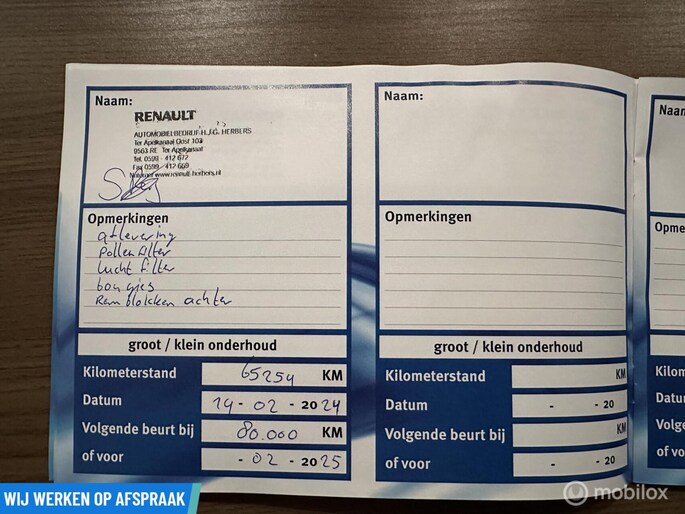 Naam:
RENAULT
AUTOMOBIELBEDRIJF H.J.G. HERBERS
Ter Apelkanaal Oost 103
9563 RE Ter Apelkanaal
Tel. 0599 - 412 672
Fax 0599 - 412 669
www.renault-herbers.nl
Opmerkingen
aflevering
Pollenfilter
Lucht filter
bougies
Remblokken achter
groot / klein onderhoud
Kilometerstand 65254 KM
Datum - 02 - 2024
Volgende beurt bij 80.000 KM
of voor - 02 - 2025
Naam:
Opmerkingen
groot / klein onderhoud
Kilometerstand KM
Datum - - 20
Volgende beurt bij KM
of voor - - 20
Naam:
Opme
Kilom
Datum
Volge
of vo
WIJ WERKEN OP AFSPRAAK
mobilox